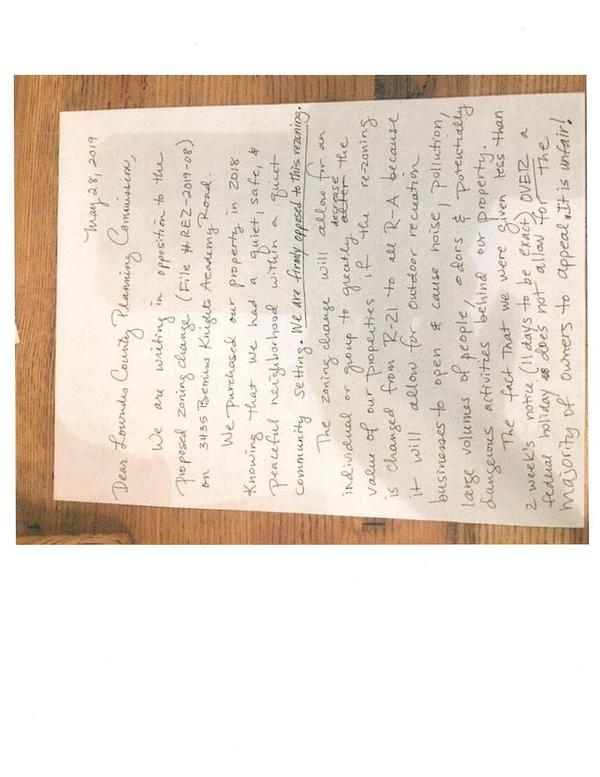 May 28, 2019
Dear Lowndes County Planning Commission,
We are writing in opposition to the
proposed zoning change (File # REZ-2019-08)
on 3435 Bemiss Knights Academy Road.
We purchased our property in 2018
knowing that we had a quiet, safe, &
peaceful neighborhood within a quiet
community setting. We are firmly opposed to this rezoning.
The zoning change will allow for an
individual or group to greatly decrease alter the
value of our properties if the re-zoning
is changed from R-21 to all R-A because
it will allow for outdoor recreation
businesses to open & cause noise, pollution,
large volumes of people, odors & potentially
dangerous activities behind our property.
The fact that we were given less than
2 week's notice (11 days to be exact) OVER a
federal holiday does not allow for the
majority of owners to appeal. It is unfair!